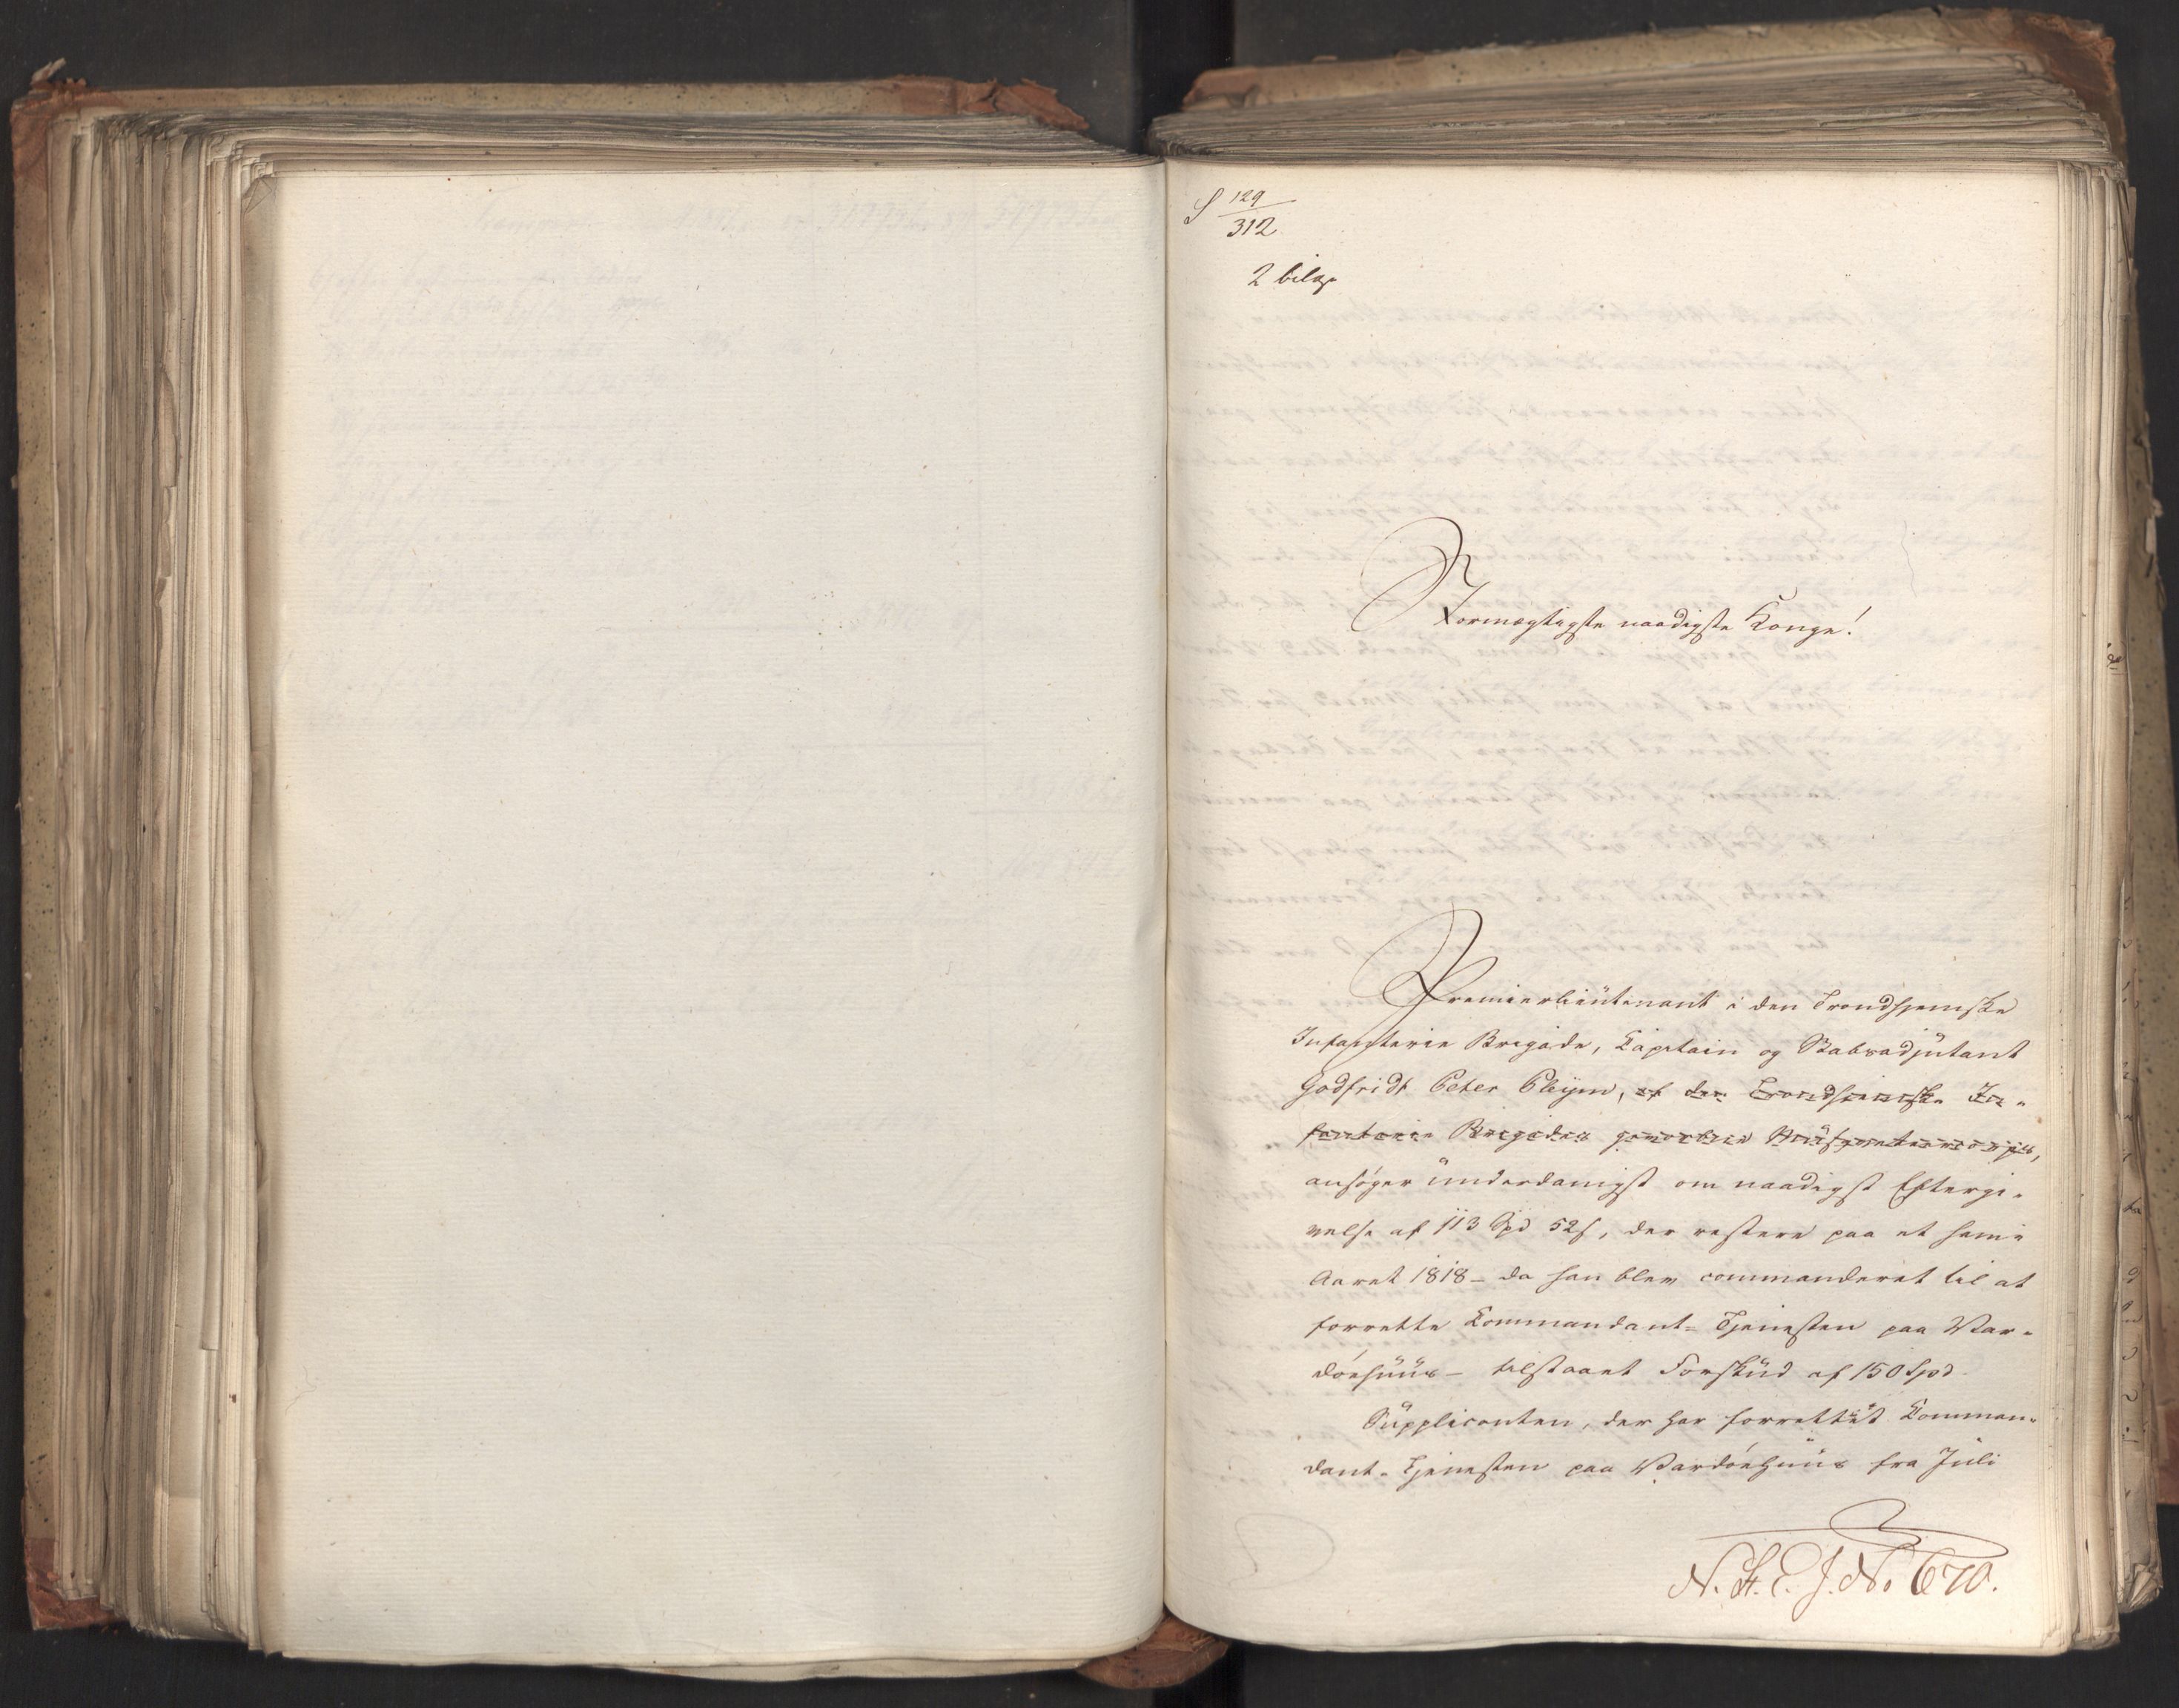 S 129
312
2 bilag
Stormægtigste naadigste Konge!
Premierlieutenant i den Trondhjemske
Infanterie Brigade, Capitain og Stabsadjutant
Godfridt Peter Pleym, af den Trondhjemske In-
fanterie Brigades gevorbne Musqueteercorps,
ansøger underdanigst om naadigst Eftergi-
velse af 113 Spd 52 s, der restere paa et ham i
Aaret 1818 - da han blev commanderet til at
forrette Commandant-Tjenesten paa War-
döehuus - tilstaaet Forskud af 150 Spd.
Suppliconten, der har forrettet Comman-
dant-Tjenesten paa Wardöehuus fra Juli
N. St. E. J. No 670.